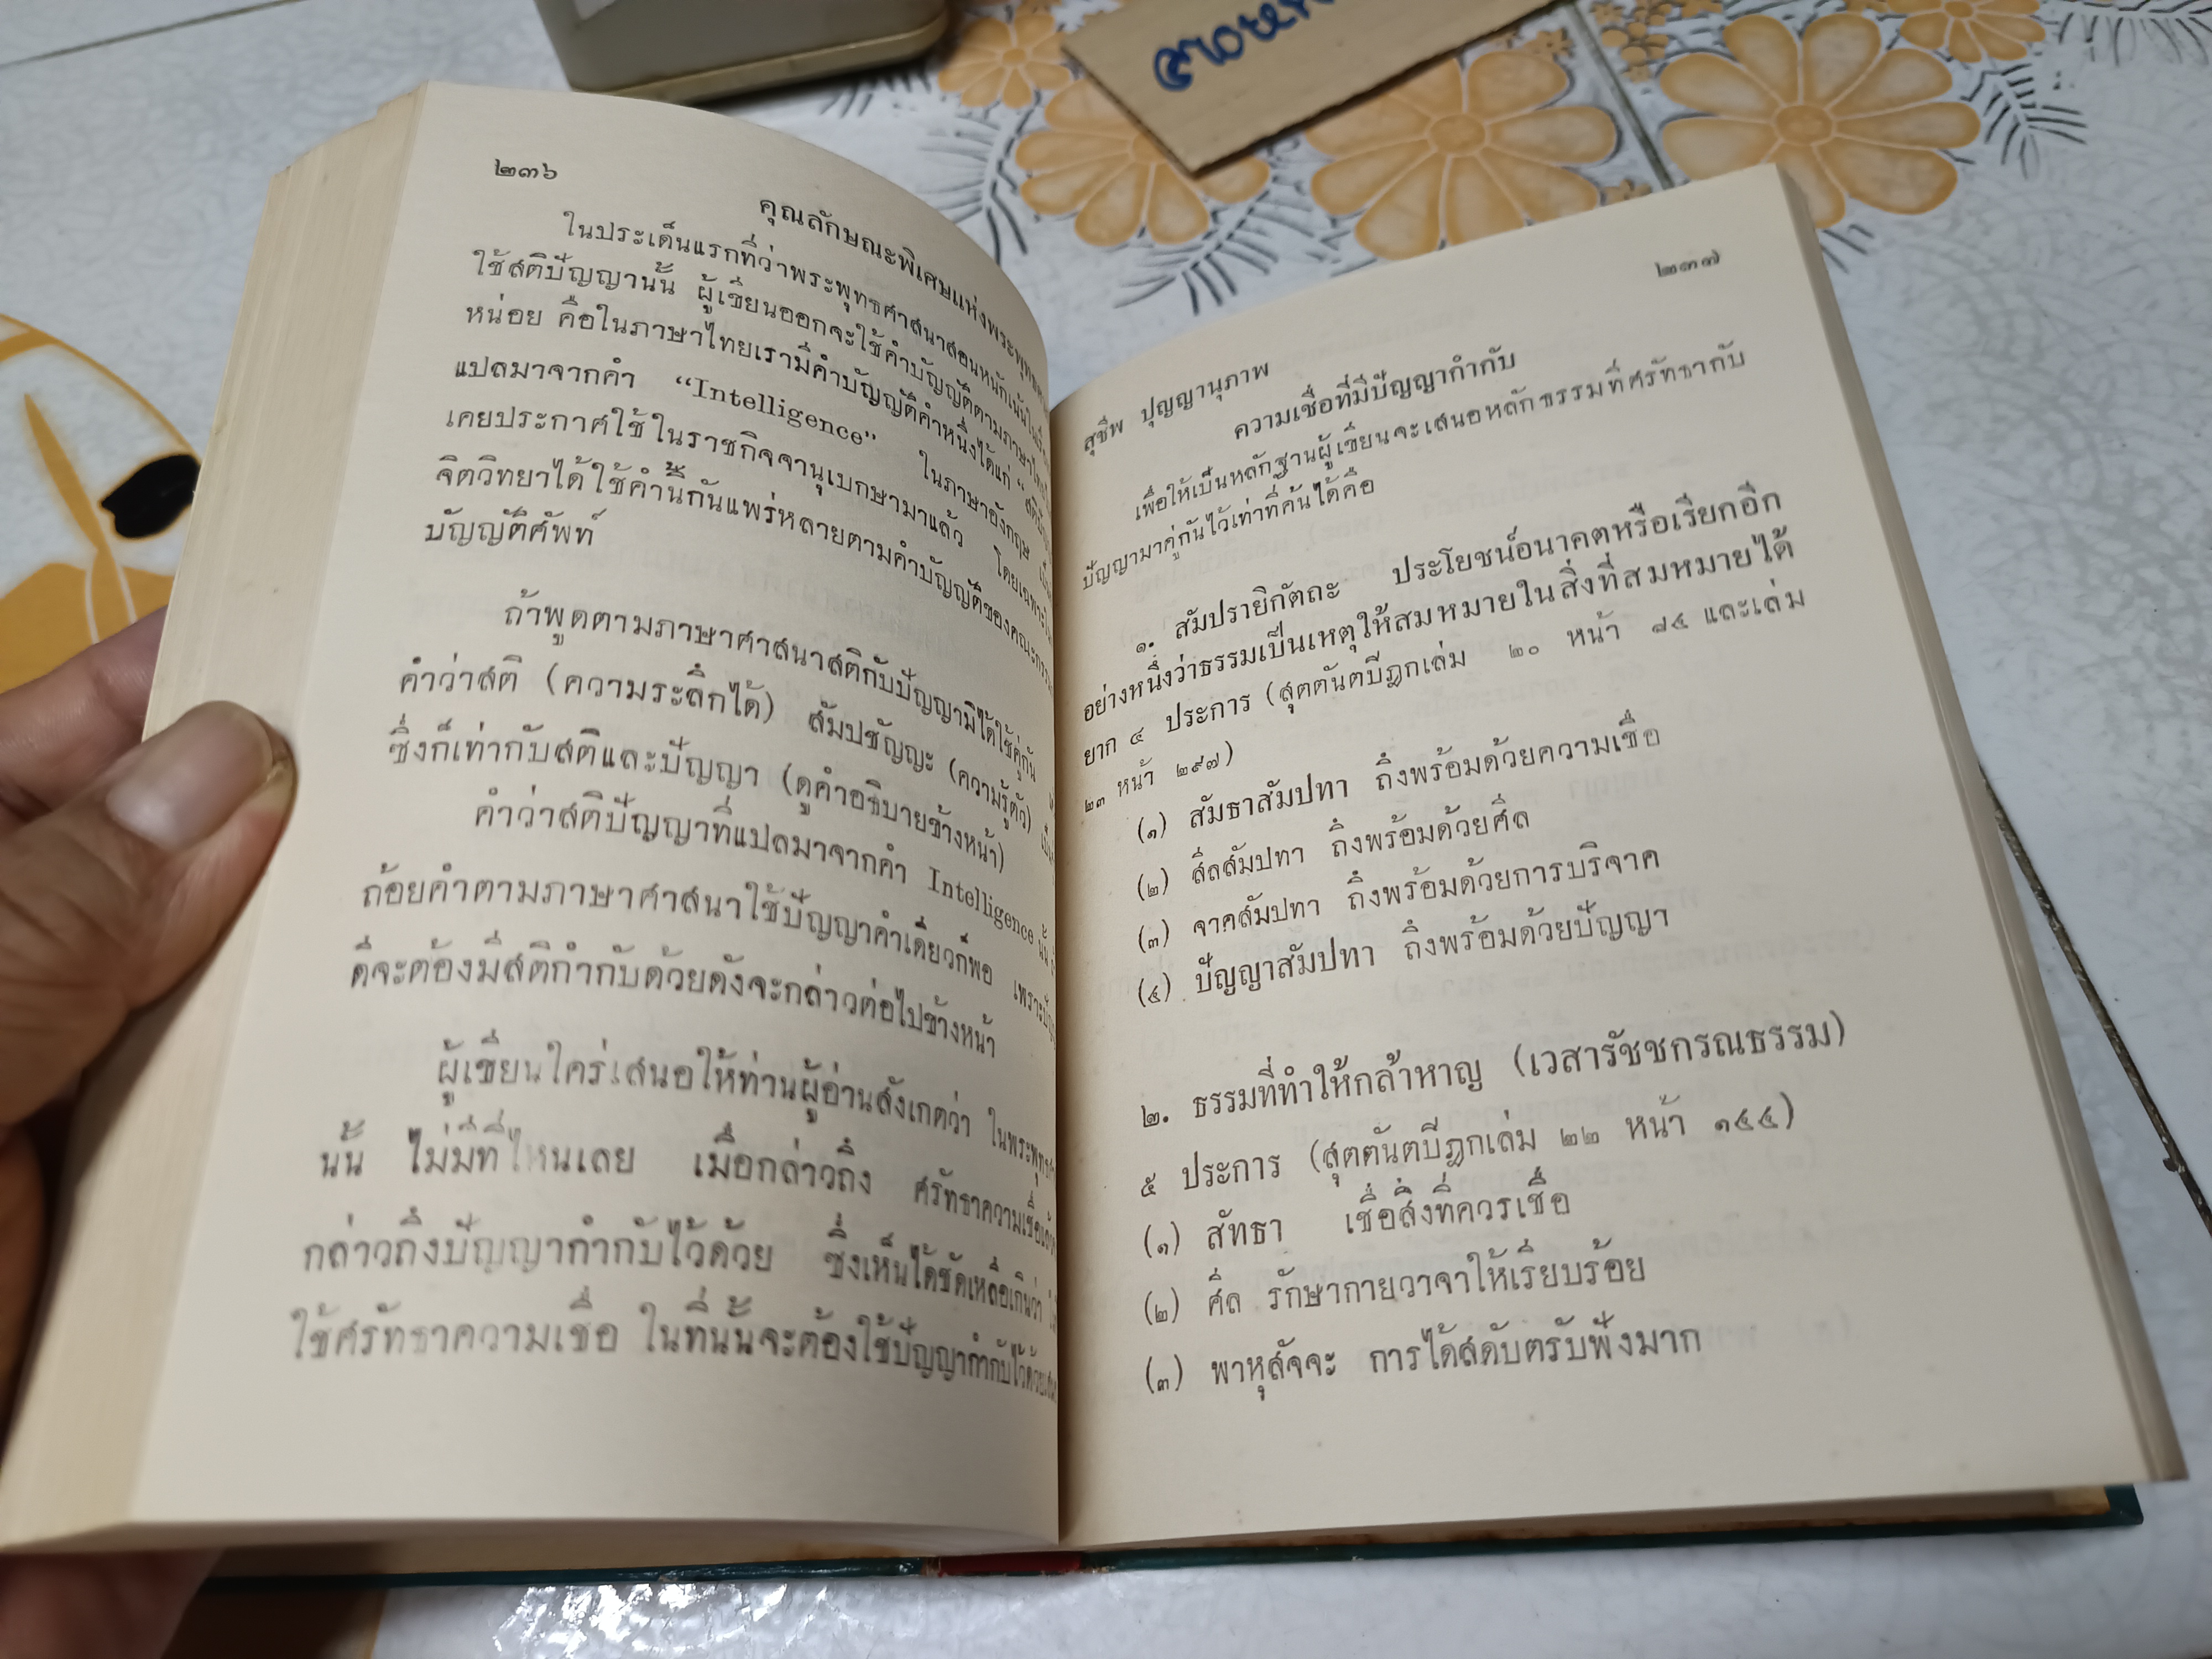 ๒๓๖
คุณลักษณะพิเศษแห่งพระพุทธศาสนา
ในประเด็นแรกที่ว่าพระพุทธศาสนาสอนหนักเน้นในเรื่อง
ใช้สติปัญญานั้น ผู้เขียนออกจะใช้คำบัญญัติตามภาษาไทย
หน่อย คือในภาษาไทยเรามีคำบัญญัติคำหนึ่งได้แก่ “สติปัญญา
แปลมาจากคำ “Intelligence” ในภาษาอังกฤษ
เคยประกาศใช้ในราชกิจจานุเบกษามาแล้ว โดยเฉพาะ
จิตวิทยาได้ใช้คำนี้กันแพร่หลายตามคำบัญญัติของคณะกรรม
บัญญัติศัพท์
ถ้าพูดตามภาษาศาสนาสติกับปัญญามิได้ใช้คู่กัน
คำว่าสติ (ความระลึกได้) สัมปชัญญะ (ความรู้ตัว)
ซึ่งก็เท่ากับสติและปัญญา (ดูคำอธิบายข้างหน้า)
คำว่าสติปัญญาที่แปลมาจากคำ Intelligence นั้น
ถ้อยคำตามภาษาศาสนาใช้ปัญญาคำเดียวก็พอ เพราะปัญญา
ดีจะต้องมีสติกำกับด้วยดังจะกล่าวต่อไปข้างหน้า
ผู้เขียนใคร่เสนอให้ท่านผู้อ่านสังเกตว่า ในพระพุทธ
นั้น ไม่มีที่ไหนเลย เมื่อกล่าวถึง ศรัทธาความเชื่อแล้ว
กล่าวถึงปัญญากำกับไว้ด้วย ซึ่งเห็นได้ชัดเหลือเกินว่า
ใช้ศรัทธาความเชื่อ ในที่นั้นจะต้องใช้ปัญญากำกับไว้ด้วย
๒๓๗
สุชีพ ปุญญานุภาพ
ความเชื่อที่มีปัญญากำกับ
เพื่อให้เป็นหลักฐานผู้เขียนจะเสนอหลักธรรมที่ศรัทธากับ
ปัญญามาคู่กันไว้เท่าที่ค้นได้คือ
๑. สัมปรายิกัตถะ ประโยชน์อนาคตหรือเรียกอีก
อย่างหนึ่งว่าธรรมเป็นเหตุให้สมหมายในสิ่งที่สมหมายได้
ยาก ๔ ประการ (สุตตันตปิฎกเล่ม ๒๐ หน้า ๘๔ และเล่ม
๒๓ หน้า ๒๙๗)
(๑) สัมธาสัมปทา ถึงพร้อมด้วยความเชื่อ
(๒) สีลสัมปทา ถึงพร้อมด้วยศีล
(๓) จาคสัมปทา ถึงพร้อมด้วยการบริจาค
(๔) ปัญญาสัมปทา ถึงพร้อมด้วยปัญญา
๒. ธรรมที่ทำให้กล้าหาญ (เวสารัชชกรณธรรม)
๕ ประการ (สุตตันตปิฎกเล่ม ๒๒ หน้า ๑๔๔)
(๑) สัทธา เชื่อสิ่งที่ควรเชื่อ
(๒) ศีล รักษากายวาจาให้เรียบร้อย
(๓) พาหุสัจจะ การได้สดับตรับฟังมาก